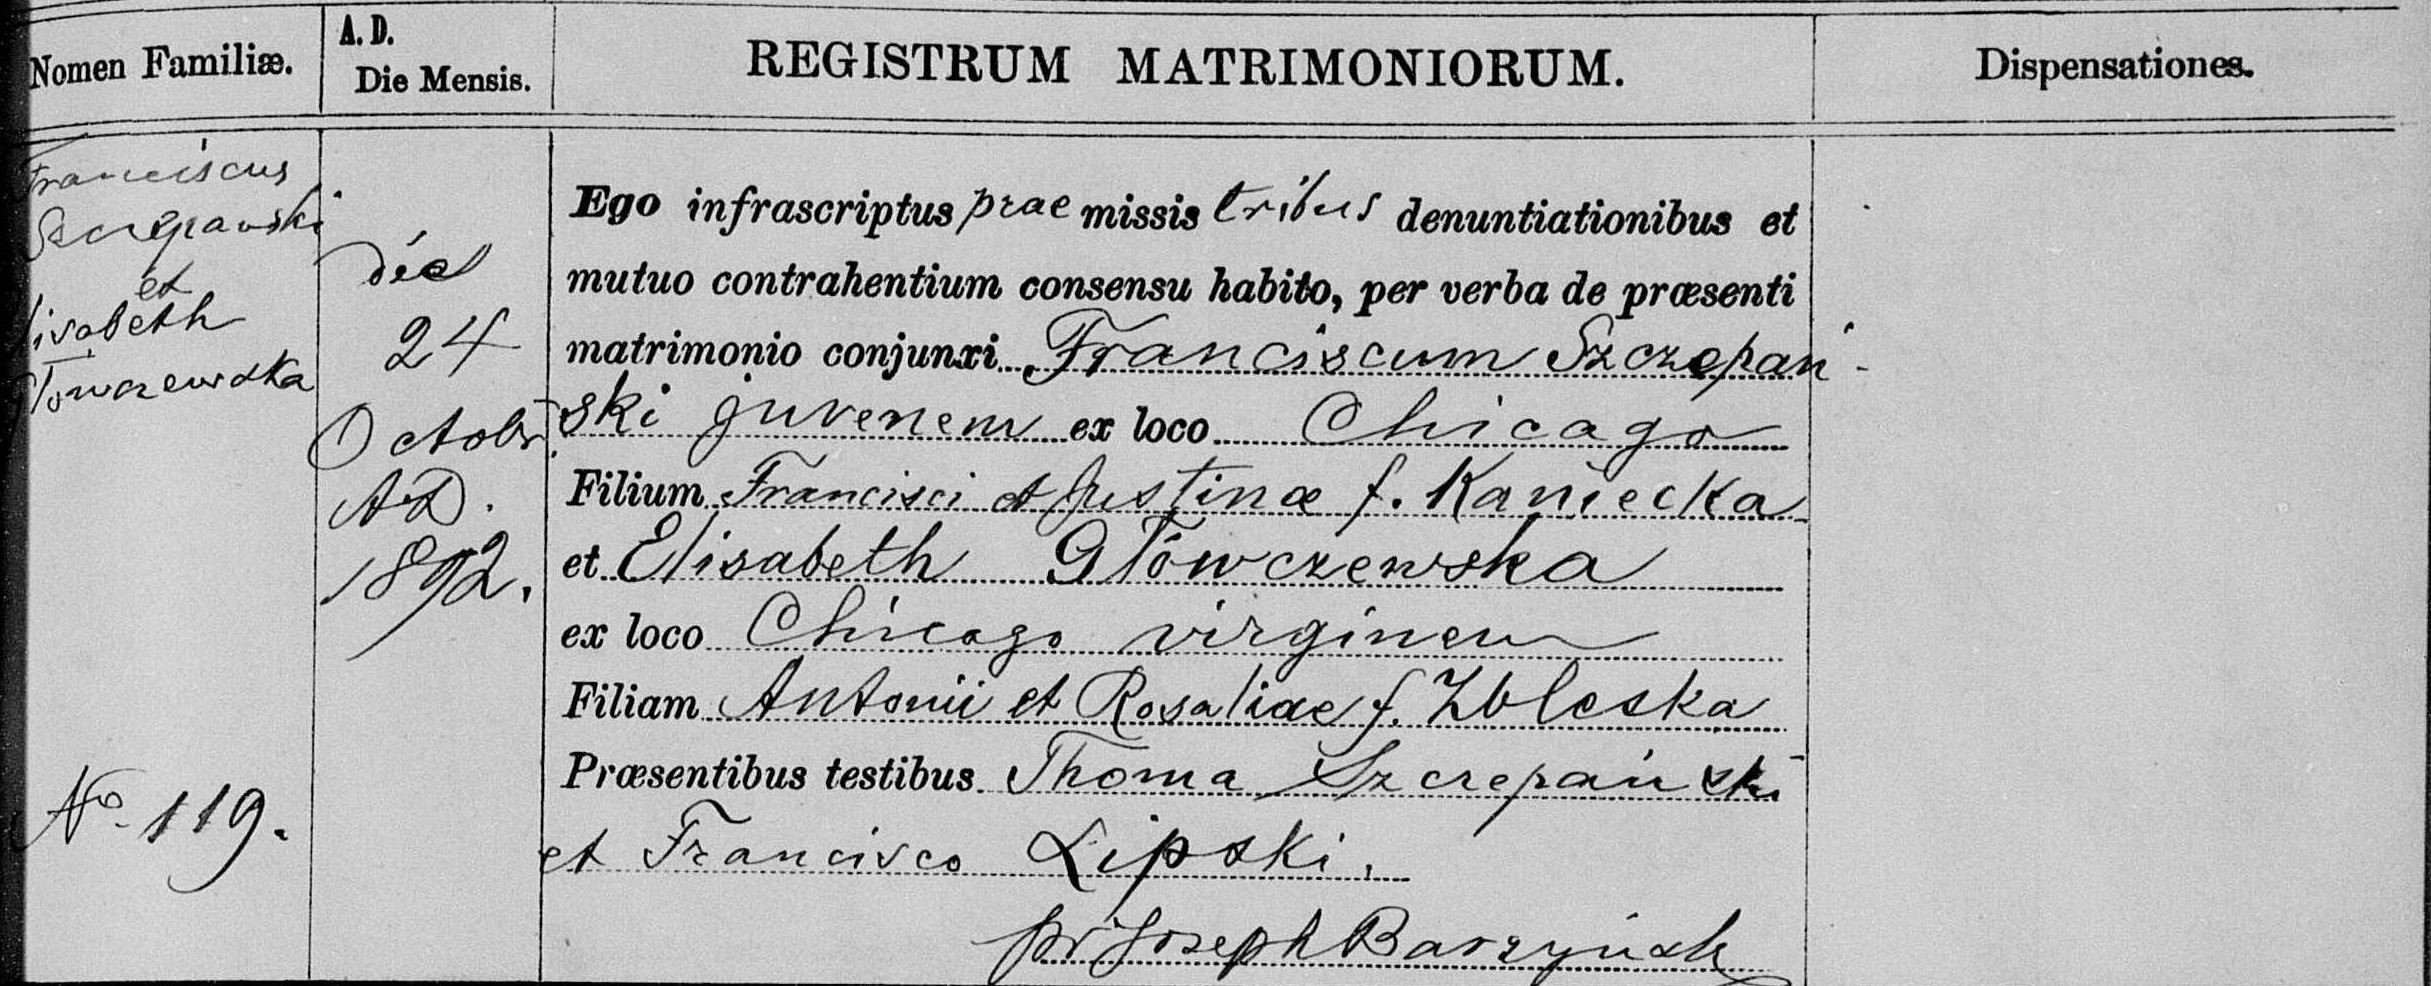 Nomen Familiæ.
A. D.
Die Mensis.
REGISTRUM MATRIMONIORUM.
Dispensationes.
Franciscus
Szczepański
et
lisabeth
łowczewska
No. 119.
die
24
Octobr.
A.D.
1892.
Ego infrascriptus prae missis tribus denuntiationibus et
mutuo contrahentium consensu habito, per verba de præsenti
matrimonio conjunxi Franciscum Szczepań-
ski juvenem ex loco Chicago
Filium Francisci et Justinæ f. Kaniecka
et Elisabeth Główczewska
ex loco Chicago virginem
Filiam Antonii et Rosaliae f. Zbleska
Præsentibus testibus Thoma Szczepański
et Francisco Lipski.
pr Joseph Barzyński